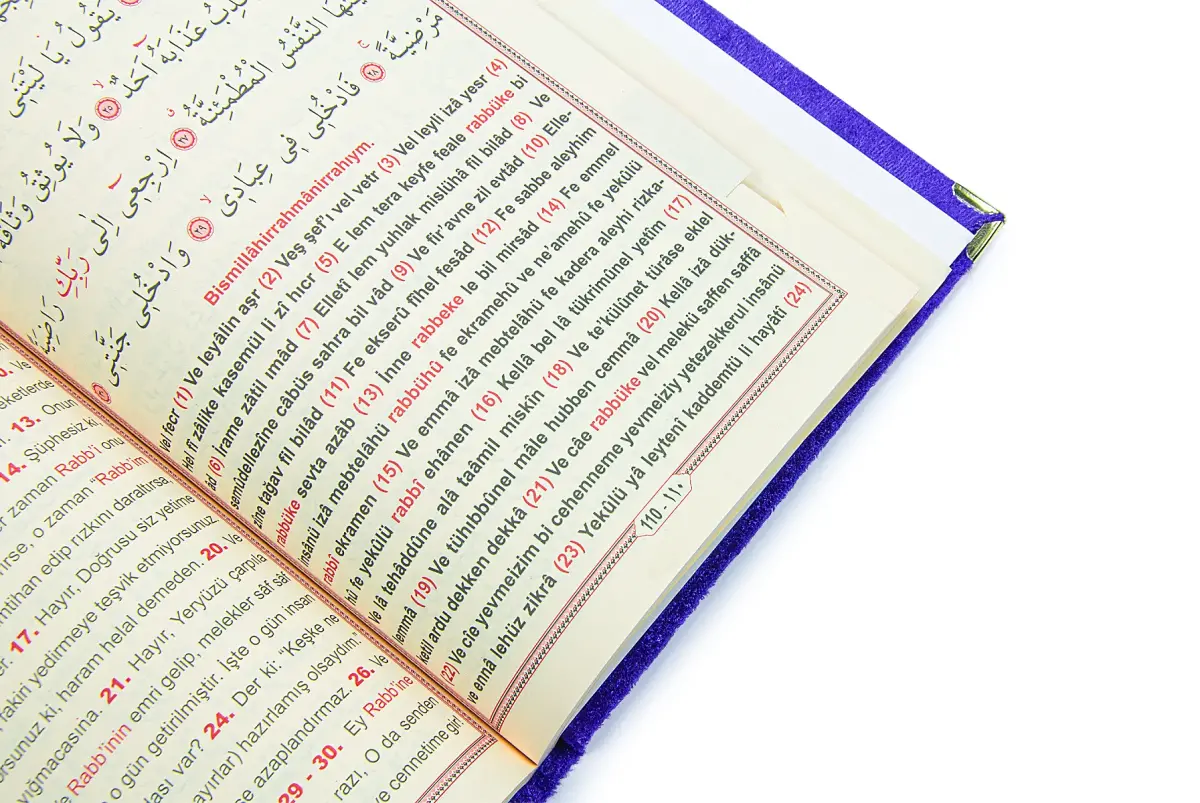 يَقُولُ يَا لَيْتَنِي
عَذَابَهُ أَحَدٌ ﴿٢٥﴾ وَلَا يُوثِقُ وَثَاقَهُ
النَّفْسُ الْمُطْمَئِنَّةُ ﴿٢٧﴾ اِرْجِعِي إِلَى رَبِّكِ
مَرْضِيَّةً ﴿٢٨﴾ فَادْخُلِي فِي عِبَادِي ﴿٢٩﴾ وَادْخُلِي جَنَّتِي
Bismillâhirrahmânirrahıym.
Vel fecr (1) Ve leyâlin aşr (2) Veş şef'ı vel vetr (3) Vel leyli izâ yesr (4)
Hel fî zâlike kasemül li zî hıcr (5) E lem tera keyfe feale rabbüke bi
âd (6) İrame zâtil ımâd (7) Elletî lem yunlak mislühâ fil bilâd (8) Ve
semûdellezîne câbüs sahra bil vâd (9) Ve fir'avne zil evtâd (10) Elle-
zîne tağav fil bilâd (11) Fe ekserû fîhel fesâd (12) Fe sabbe aleyhim
rabbüke sevta azâb (13) İnne rabbeke le bil mirsâd (14) Fe emmel
insânü izâ mebtelâhü rabbühû fe ekramehû ve ne'amehû fe yekûlü
rabbî ekramen (15) Ve emmâ izâ mebtelâhü fe kadera aleyhi rizka-
hû fe yekûlü rabbî ehânen (16) Kellâ bel lâ tükrimûnel yetîm (17)
Ve lâ tehâddûne alâ taâmil miskîn (18) Ve te'külûnet türâse eklel
lemmâ (19) Ve tühıbbûnel mâle hubben cemmâ (20) Kellâ izâ dük-
ketil ardu dekken dekkâ (21) Ve câe rabbüke vel melekü saffen saffâ
(22) Ve cîe yevmeizim bi cehenneme yevmeiziy yetezekkerul insânü
ve ennâ lehüz zikrâ (23) Yekûlü yâ leytenî kaddemtü li hayâtî (24)
110 - ١١٠
13. Onun
14. Şüphesiz ki
zaman Rabb'i onu
o zaman "Rabb'im
imtihan edip rızkını daraltırsa,
17. Hayır, Doğrusu siz yetime
fakiri yedirmeye teşvik etmiyorsunuz.
ki, haram helal demeden. 20. Ve
yığmacasına. 21. Hayır, Yeryüzü çarpıla
Rabb'inin emri gelip, melekler sâf sâf
o gün getirilmiştir. İşte o gün insan
var? 24. Der ki: "Keşke
hazırlamış olsaydım".
azaplandırmaz. 26. Ve
29 - 30. Ey Rabb'ine
razı, O da senden
ve cennetime gir!